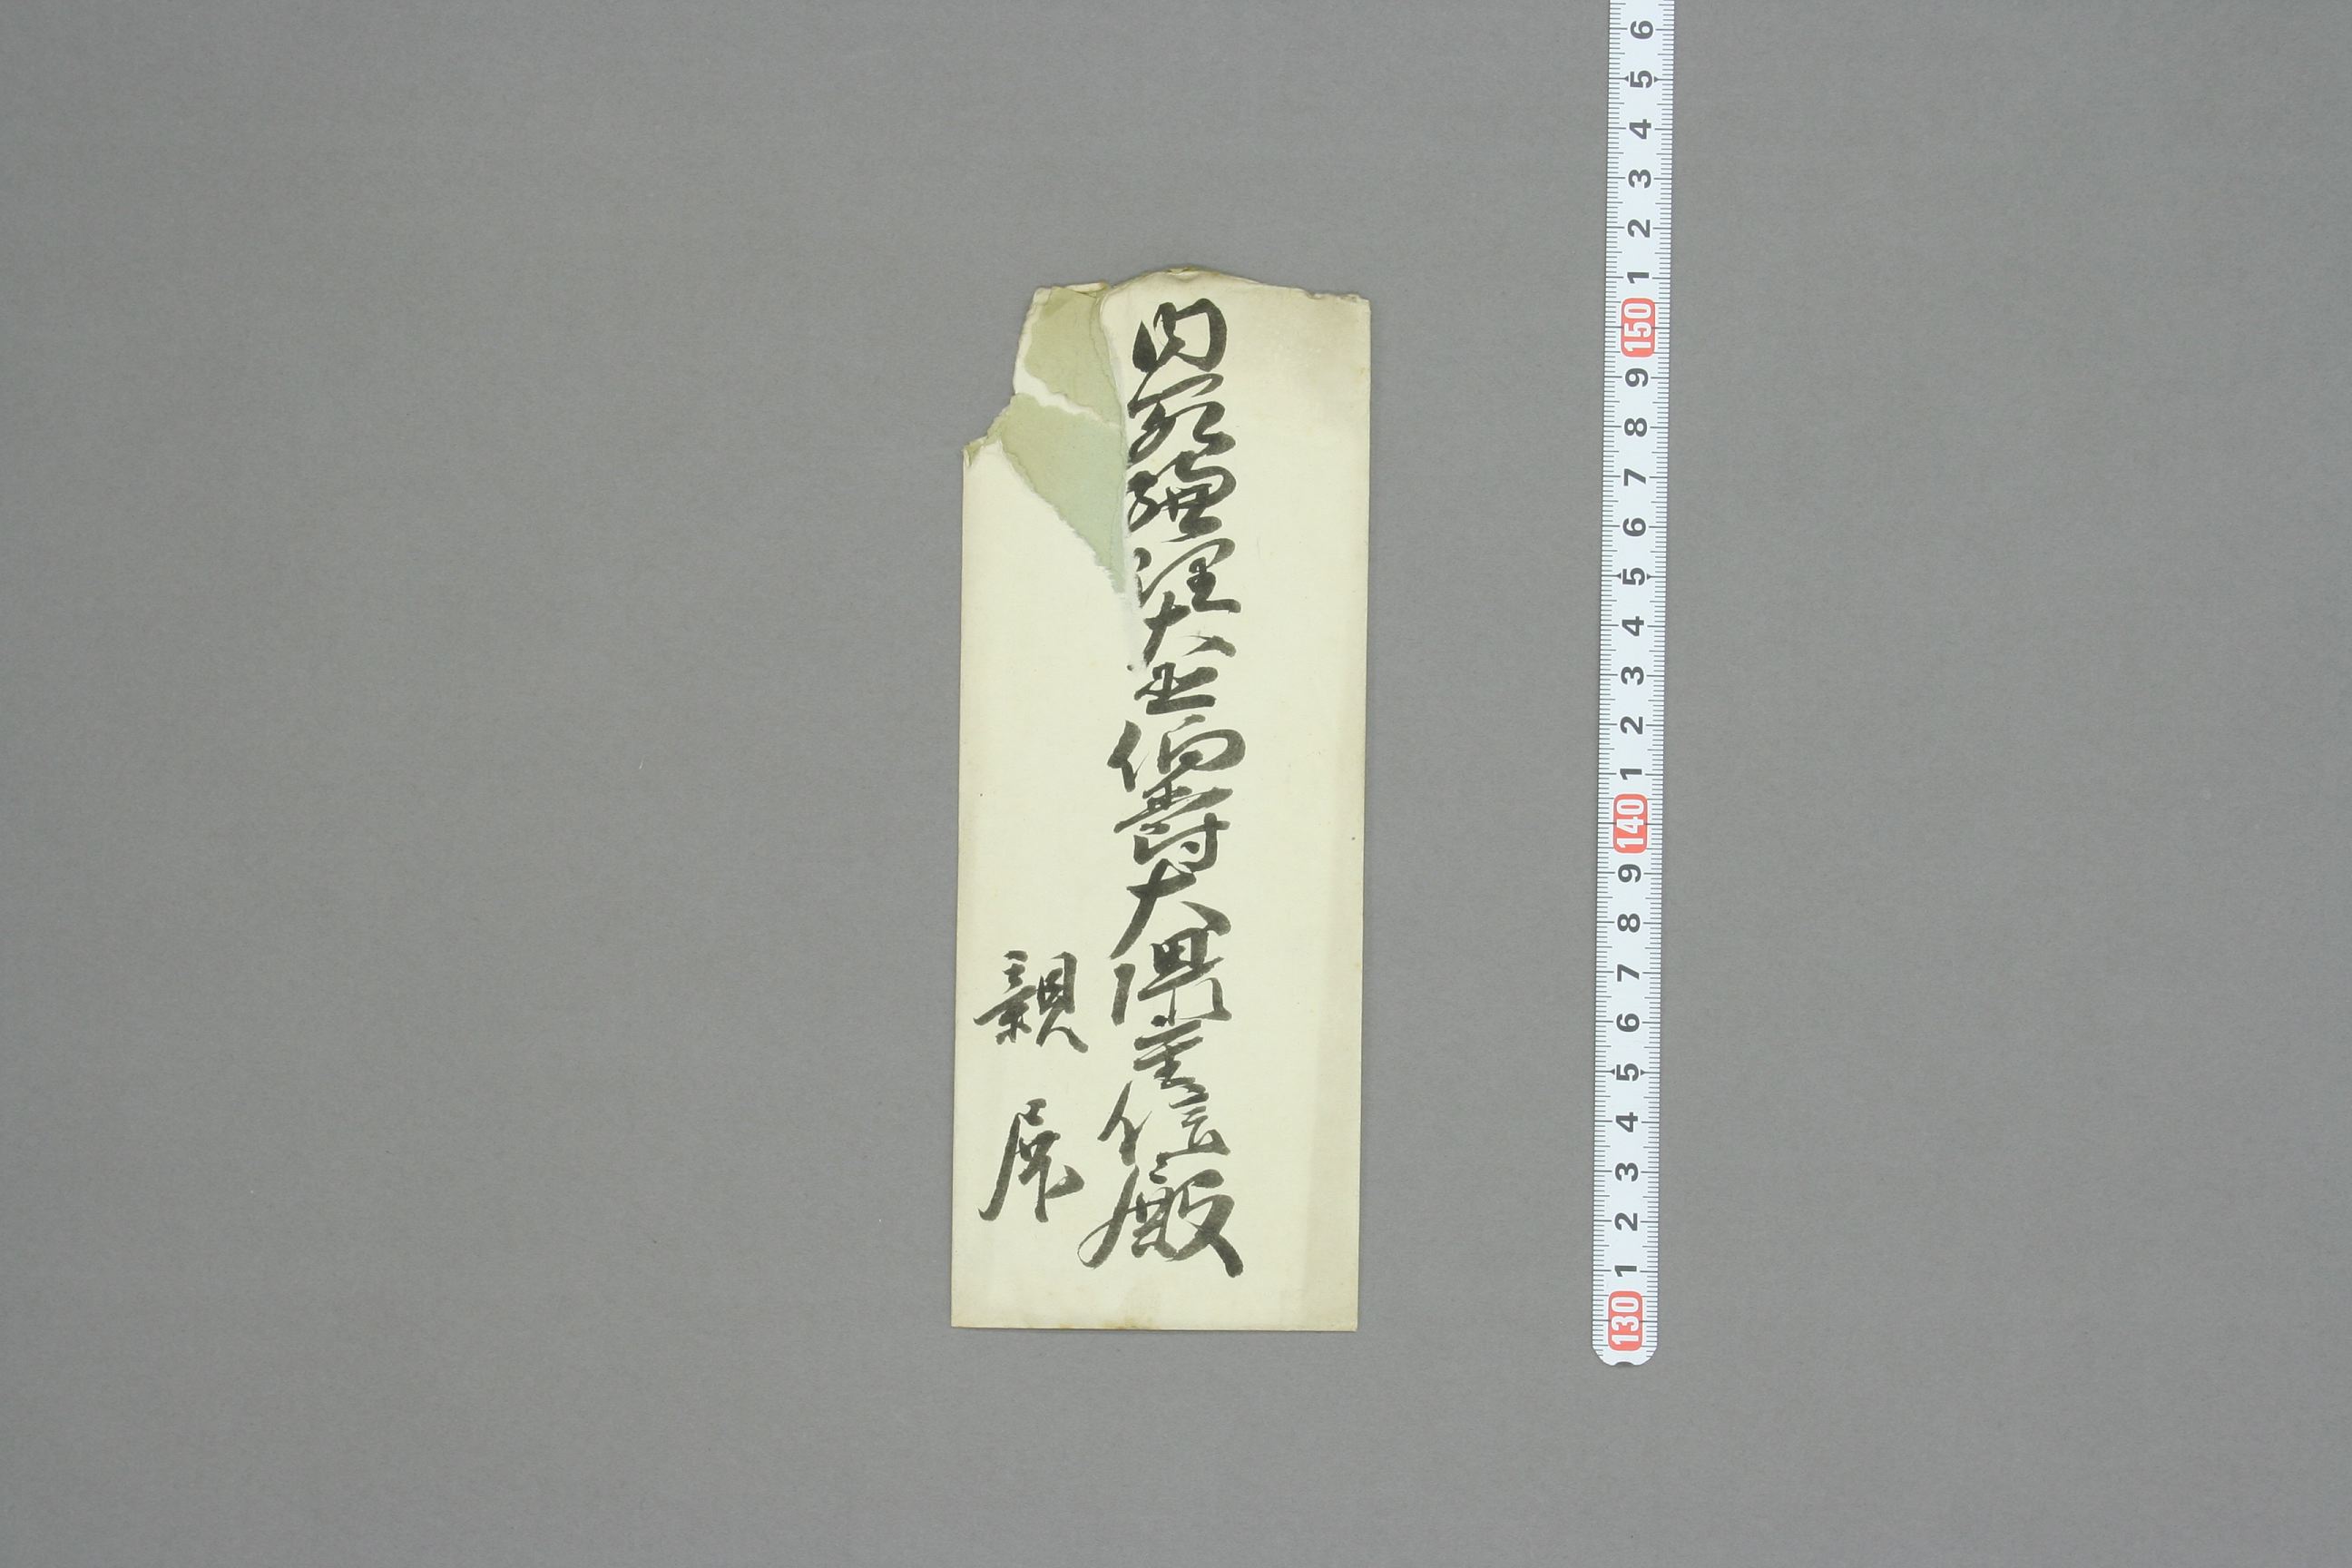 内閣總理大臣伯爵大隈重信殿
親展
6 5 4 3 2 1 150 9 8 7 6 5 4 3 2 1 140 9 8 7 6 5 4 3 2 1 130